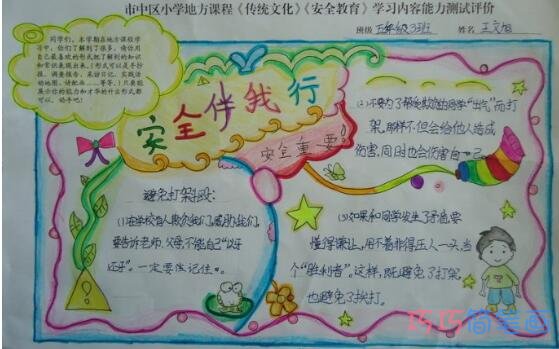 市中区小学地方课程《传统文化》《安全教育》学习内容能力测试评价
班级 五年级3班 姓名 王文旭
同学们，本学期在地方课程学
习中，你们了解到了很多，请你用
自己最喜欢的形式把了解到的知识
和常识表现出来。（形式可以是手抄
报、调查报告、采访日记、实践活
动绘图、诗配画……等等。）只要能
展示你的能力和才华的什么形式都
可以，动手吧！
安全伴我行
安全重要！
避免打架斗殴：
(1)在学校有人欺负我们，威胁我们，
要告诉老师、父母，不能自己“以牙
还牙”。一定要记住。
(2)不要为了帮助同学“出气”而打
架，那样不但会给他人造成
伤害，同时也会伤害自己。
(3)如果和同学发生了矛盾要
懂得谦让，用不着非得压人一头，当
个“胜利者”。这样，既避免了打架，
也避免了挨打。
巧巧简笔画